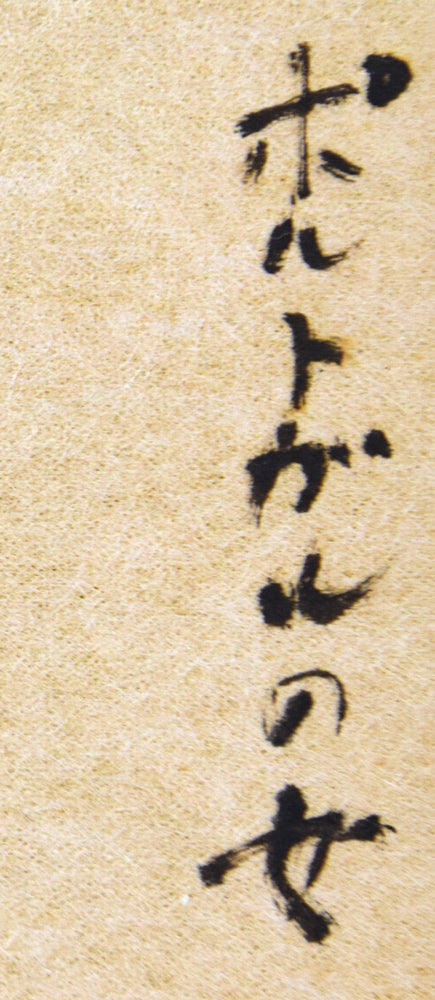 ポルトガルの女